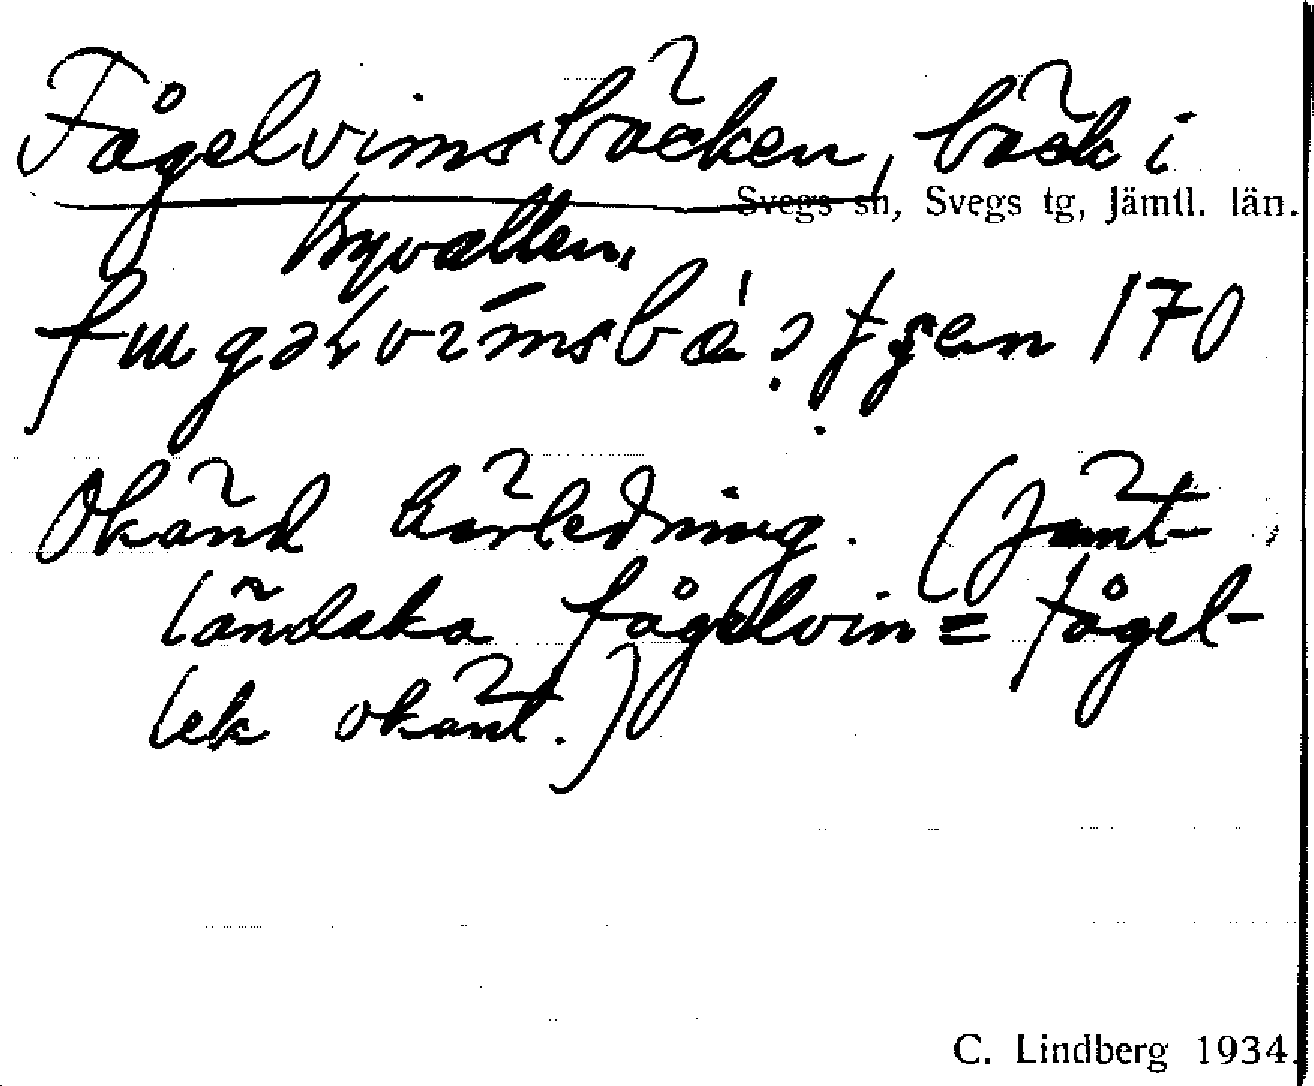 Fågelvimsbäcken, bäck i
Svegs sn, Svegs tg, Jämtl. län.
Byvallen.
170
Okänd härledning. (Jämt-
ländska fågelvin = fågel-
lek okänt.)
C. Lindberg 1934.